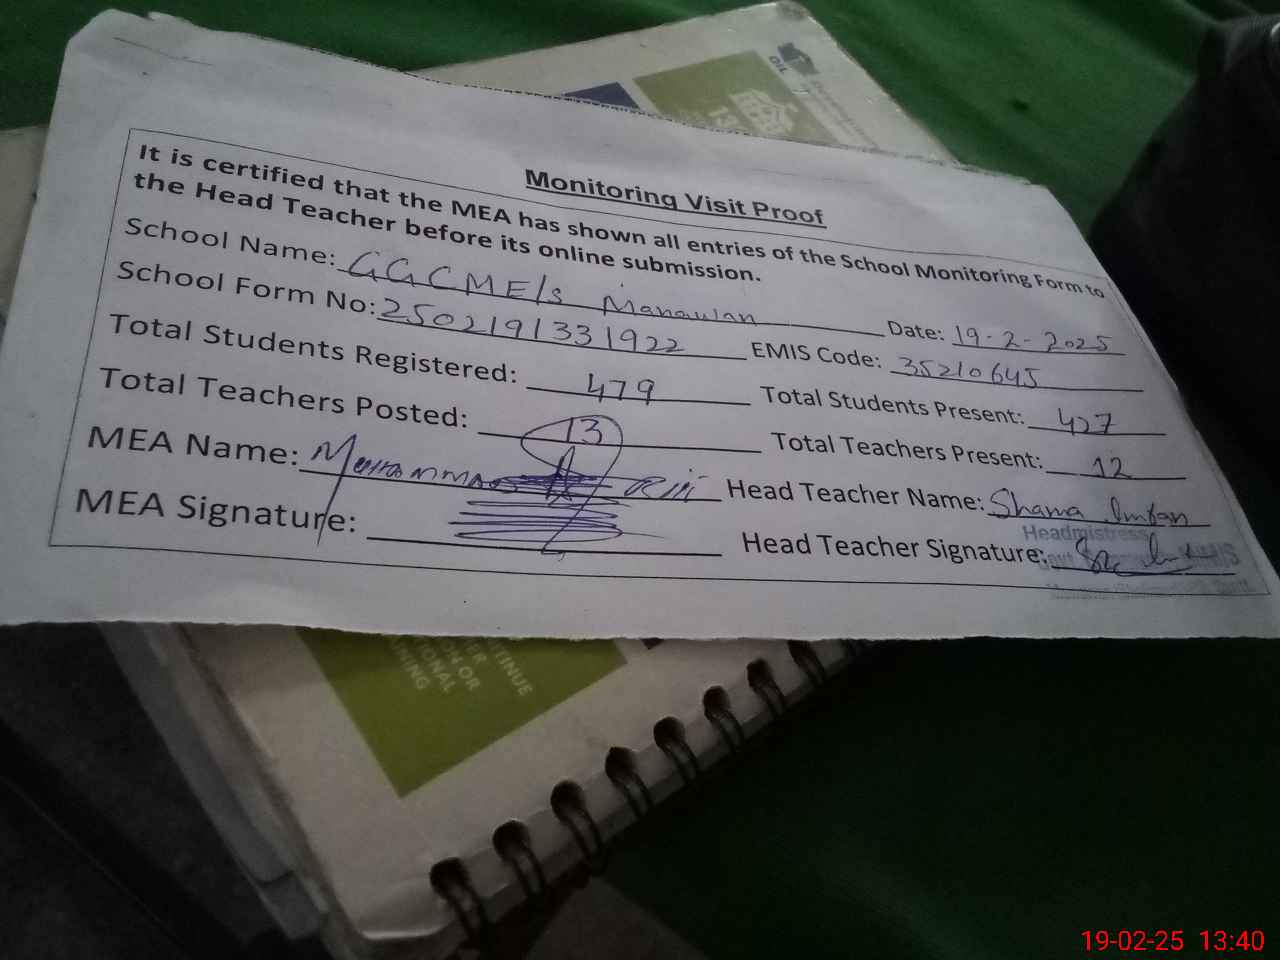 Monitoring Visit Proof
It is certified that the MEA has shown all entries of the School Monitoring Form to
the Head Teacher before its online submission.
School Name: GGCMEls Manawan Date: 19-2-2025
School Form No: 2502191331922 EMIS Code: 35210645
Total Students Registered: 479 Total Students Present: 427
Total Teachers Posted: 13 Total Teachers Present: 12
MEA Name: Muhammad Head Teacher Name: Shama Imran
MEA Signature: Head Teacher Signature:
Headmistress
TINUE
ON OR
IONAL
NING
19-02-25 13:40